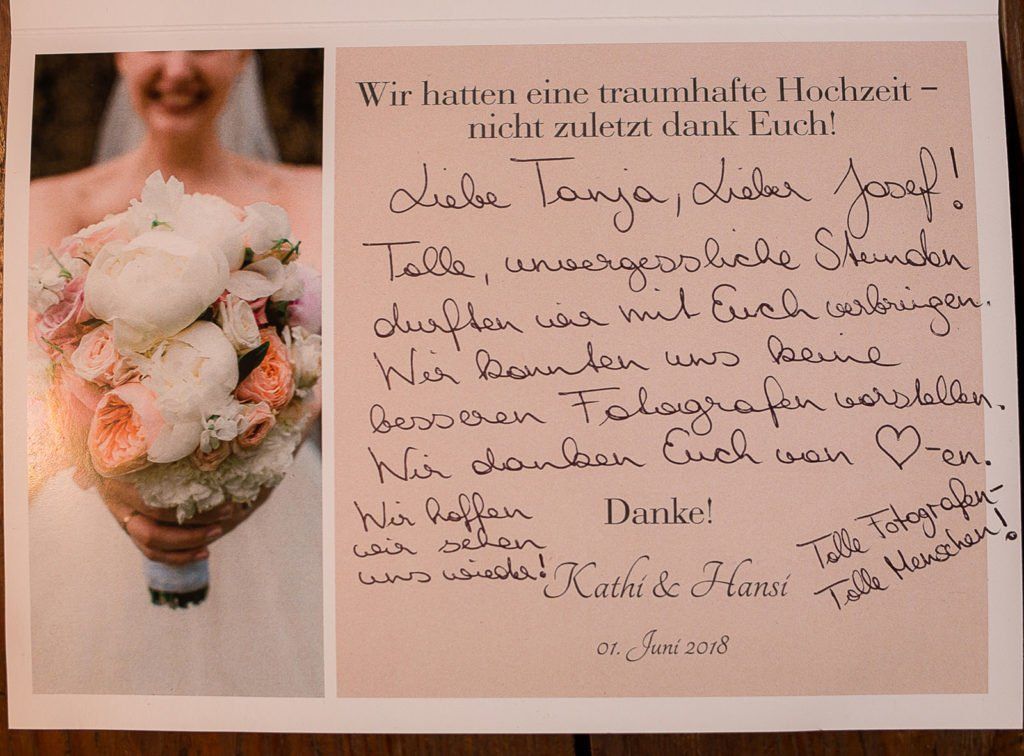 Wir hatten eine traumhafte Hochzeit –
nicht zuletzt dank Euch!
Liebe Tanja, Lieber Josef!
Tolle, unvergessliche Stunden
durften wir mit Euch verbringen.
Wir konnten uns keine
besseren Fotografen vorstellen.
Wir danken Euch von ♡-en.
Danke!
Wir hoffen
wir sehen
uns wieder!
Tolle Fotografen-
Tolle Menschen!
Kathi & Hansi
01. Juni 2018